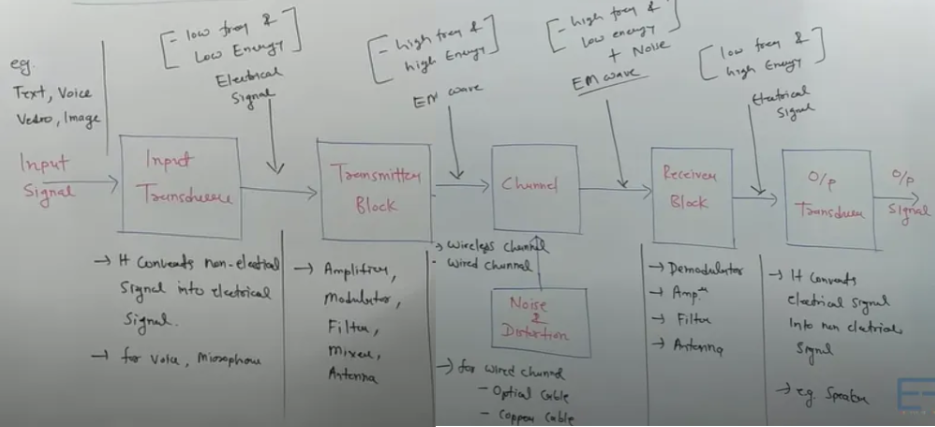 eg.
Text, Voice
Vedio, Image
Input
Signal
- low freq &
Low Energy
Electrical
Signal
- high freq &
high Energy
EM wave
- high freq &
low energy
+ Noise
EM wave
low freq &
high Energy
Electrical
Signal
Input
Transducer
Transmitter
Block
Channel
Receiver
Block
O/p
Transducer
O/p
Signal
→ It Converts non-electrical
Signal into electrical
Signal.
→ for Voice, Microphone
→ Amplifier,
Modulator,
Filter,
Mixer,
Antenna
→ Wireless Channel
- Wired Channel
Noise
&
Distortion
→ for wired channel
- Optical Cable
- Copper Cable
→ Demodulator
→ Amp.
→ Filter
→ Antenna
→ It Converts
electrical Signal
Into non electrical
Signal
→ eg. Speaker